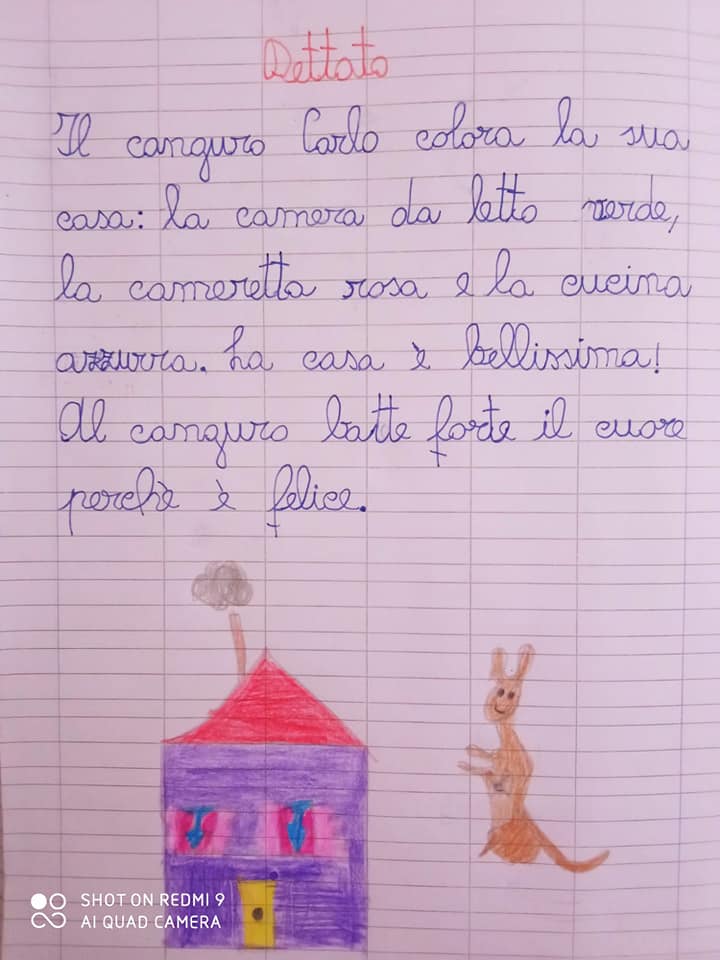 Dettato
Il canguro Carlo colora la sua
casa: la camera da letto verde,
la cameretta rosa e la cucina
azzurra. La casa è bellissima!
Al canguro batte forte il cuore
perchè è felice.
SHOT ON REDMI 9
AI QUAD CAMERA